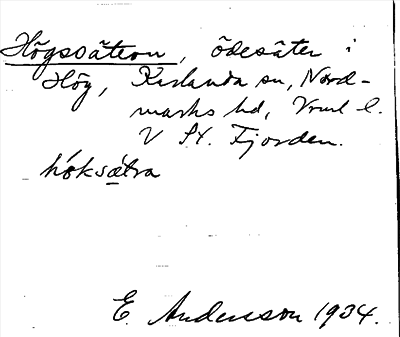 Högssätern, ödesäter i
Hög, Karlanda sn, Nord-
marks hd, Vrml l.
V St. Fjorden.
hóksa̱tra
E. Andersson 1934.